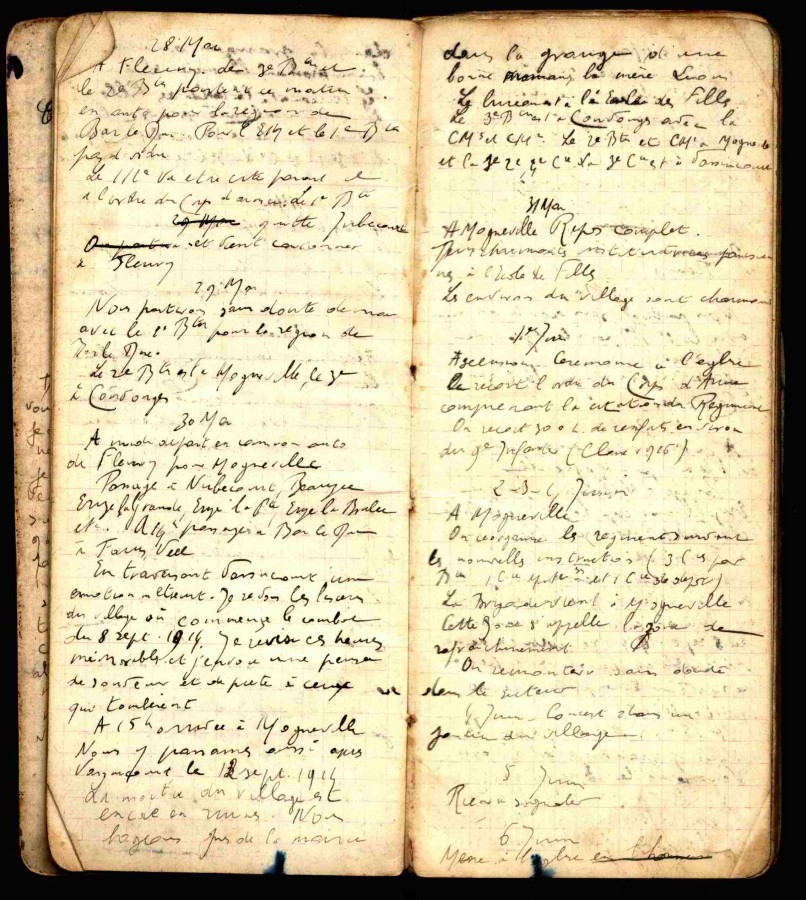 28 Mai
A Fleury. de 3e Bon et
le 2e Bon partent ce matin
en auto pour la région de
Bar le Duc. Pour l'EM et le 1er Bon
pas d'ordre
Le 111e va être cité parait-il
à l'ordre du Corps d'armée. Le 1er Bon
29 Mai quitte Jubécourt
On partira et vient cantonner
à Fleury
29 Mai
Nous partirons sans doute demain
avec le 1er Bon pour la région de
Bar le Duc.
Le 2e Bon est à Mogneville, le 3e
à Contonges
30 Mai
A midi départ en camion auto
de Fleury pour Mogneville
Passage à Nubécourt, Beauzée
Erize la Grande, Erize la Pte, Erize la Brulée
etc. A 14h passage à Bar le Duc
à Fains Véel
En traversant Vassincourt, une
émotion m'étreint. Je revois les lisières
du village où commença le combat
du 8 sept. 1914. Je revis ces heures
mémorables et j'envoie une pensée
de souvenir et de piété à ceux
qui tombèrent
A 15h arrivée à Mogneville
Nous y passames aussi après
Vassincourt le 12 sept. 1914
La moitié du village est
encore en ruines. Nous
logeons près de la mairie
dans la grange d'une
bonne maman la mère
Le bureau est à l'école des Filles
Le 3e Bon est à Contonges avec la
CM3 et CM1. Le 2e Bon et CM2 à Mogneville
et la 1e 2e Cie La 3e Cie est à Vassincourt
31 Mai
A Mogneville Repos complet.
à l'école de Filles
Les environs du village sont charmants
1er Juin
Ascension Cérémonie à l'église
On reçoit l'ordre du Corps d'Armée
comprenant la citation du Régiment
On reçoit 300 h. de renforts environ
du 9e Infanterie (Classe 1916)
2-3-4 Juin
A Mogneville
On réorganise le régiment suivant
les nouvelles instructions (3 Cies par
Bon, 1 Cie et 1 Cie de dépôt)
La Brigade vient à Mogneville
Cette zone s'appelle la zone de
rafraichissement
On remontera sans doute
dans le secteur
4 Juin Concert dans un
jardin du village
5 Juin
Rien à signaler
6 Juin
Messe à l'église